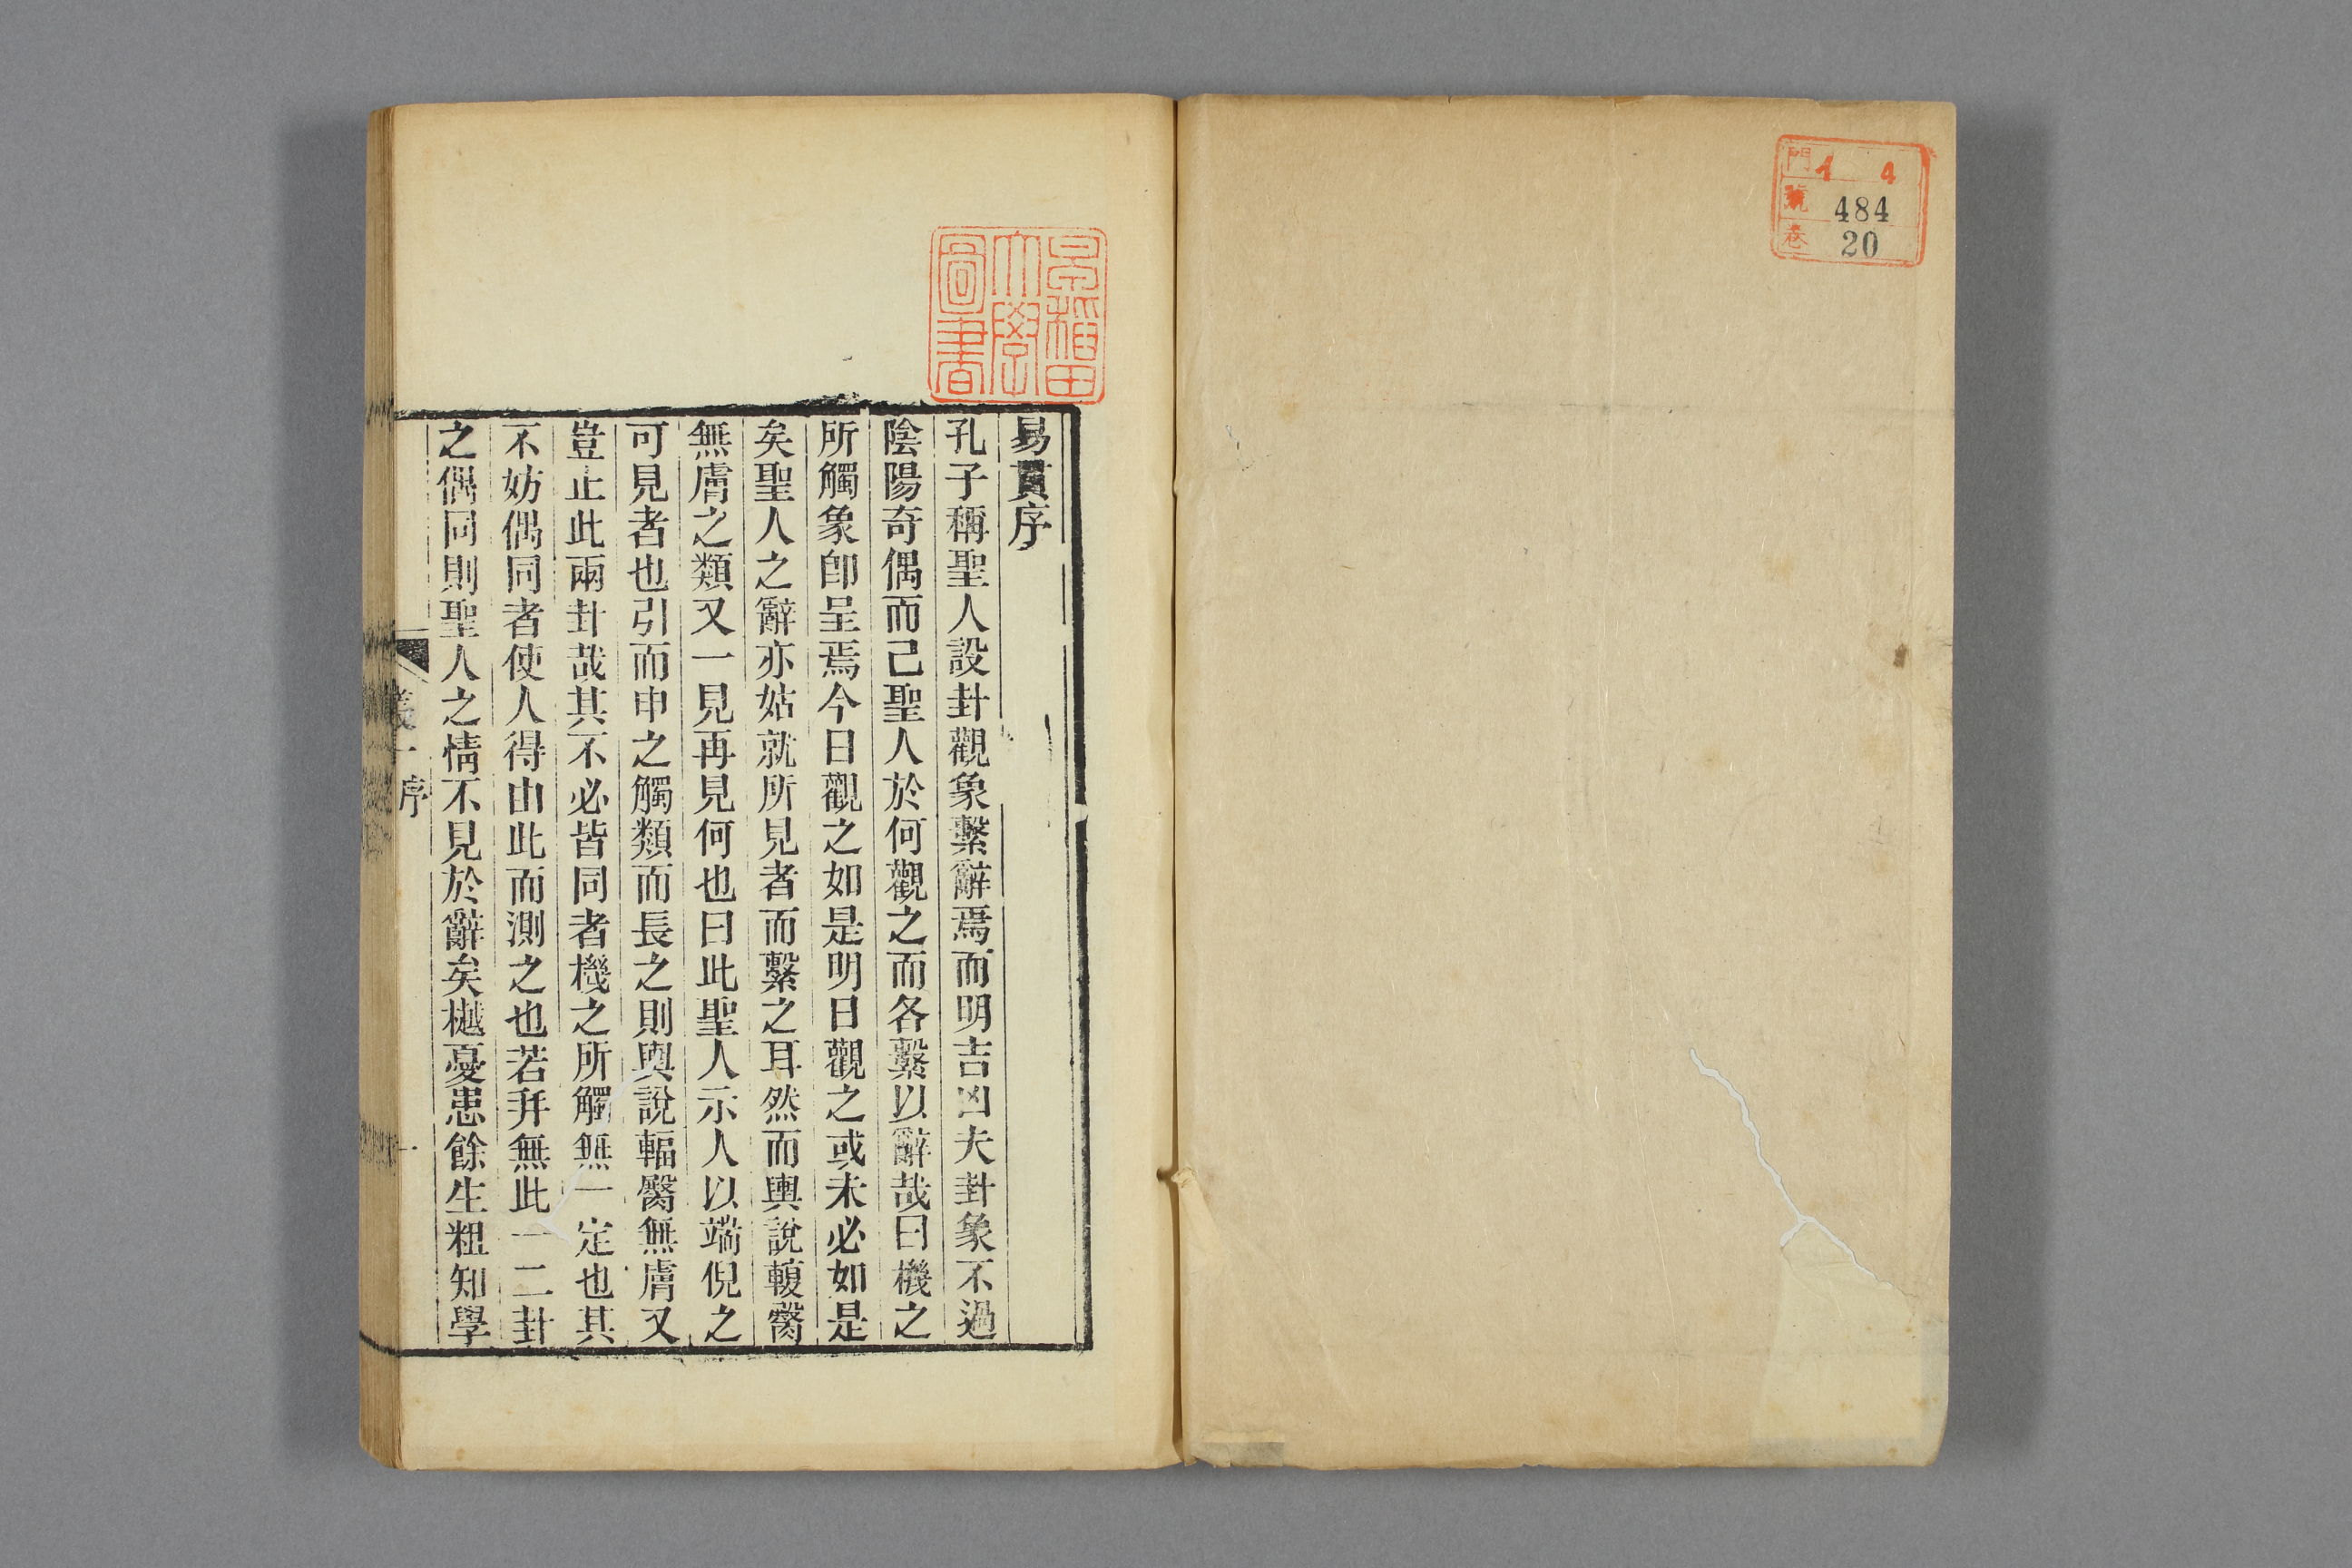 門 1 4
號 484
卷 20
早稲田
大學
圖書
易貫序
孔子稱聖人設卦觀象繫辭焉而明吉凶夫卦象不過
陰陽奇偶而已聖人於何觀之而各繫以辭哉曰機之
所觸象卽呈焉今日觀之如是明日觀之或未必如是
矣聖人之辭亦姑就所見者而繫之耳然而輿說輹臀
無膚之類又一見再見何也曰此聖人示人以端倪之
可見者也引而申之觸類而長之則輿說輻臀無膚又
豈止此兩卦哉其不必皆同者機之所觸無一定也其
不妨偶同者使人得由此而測之也若并無此一二卦
之偶同則聖人之情不見於辭矣樾憂患餘生粗知學
序
一